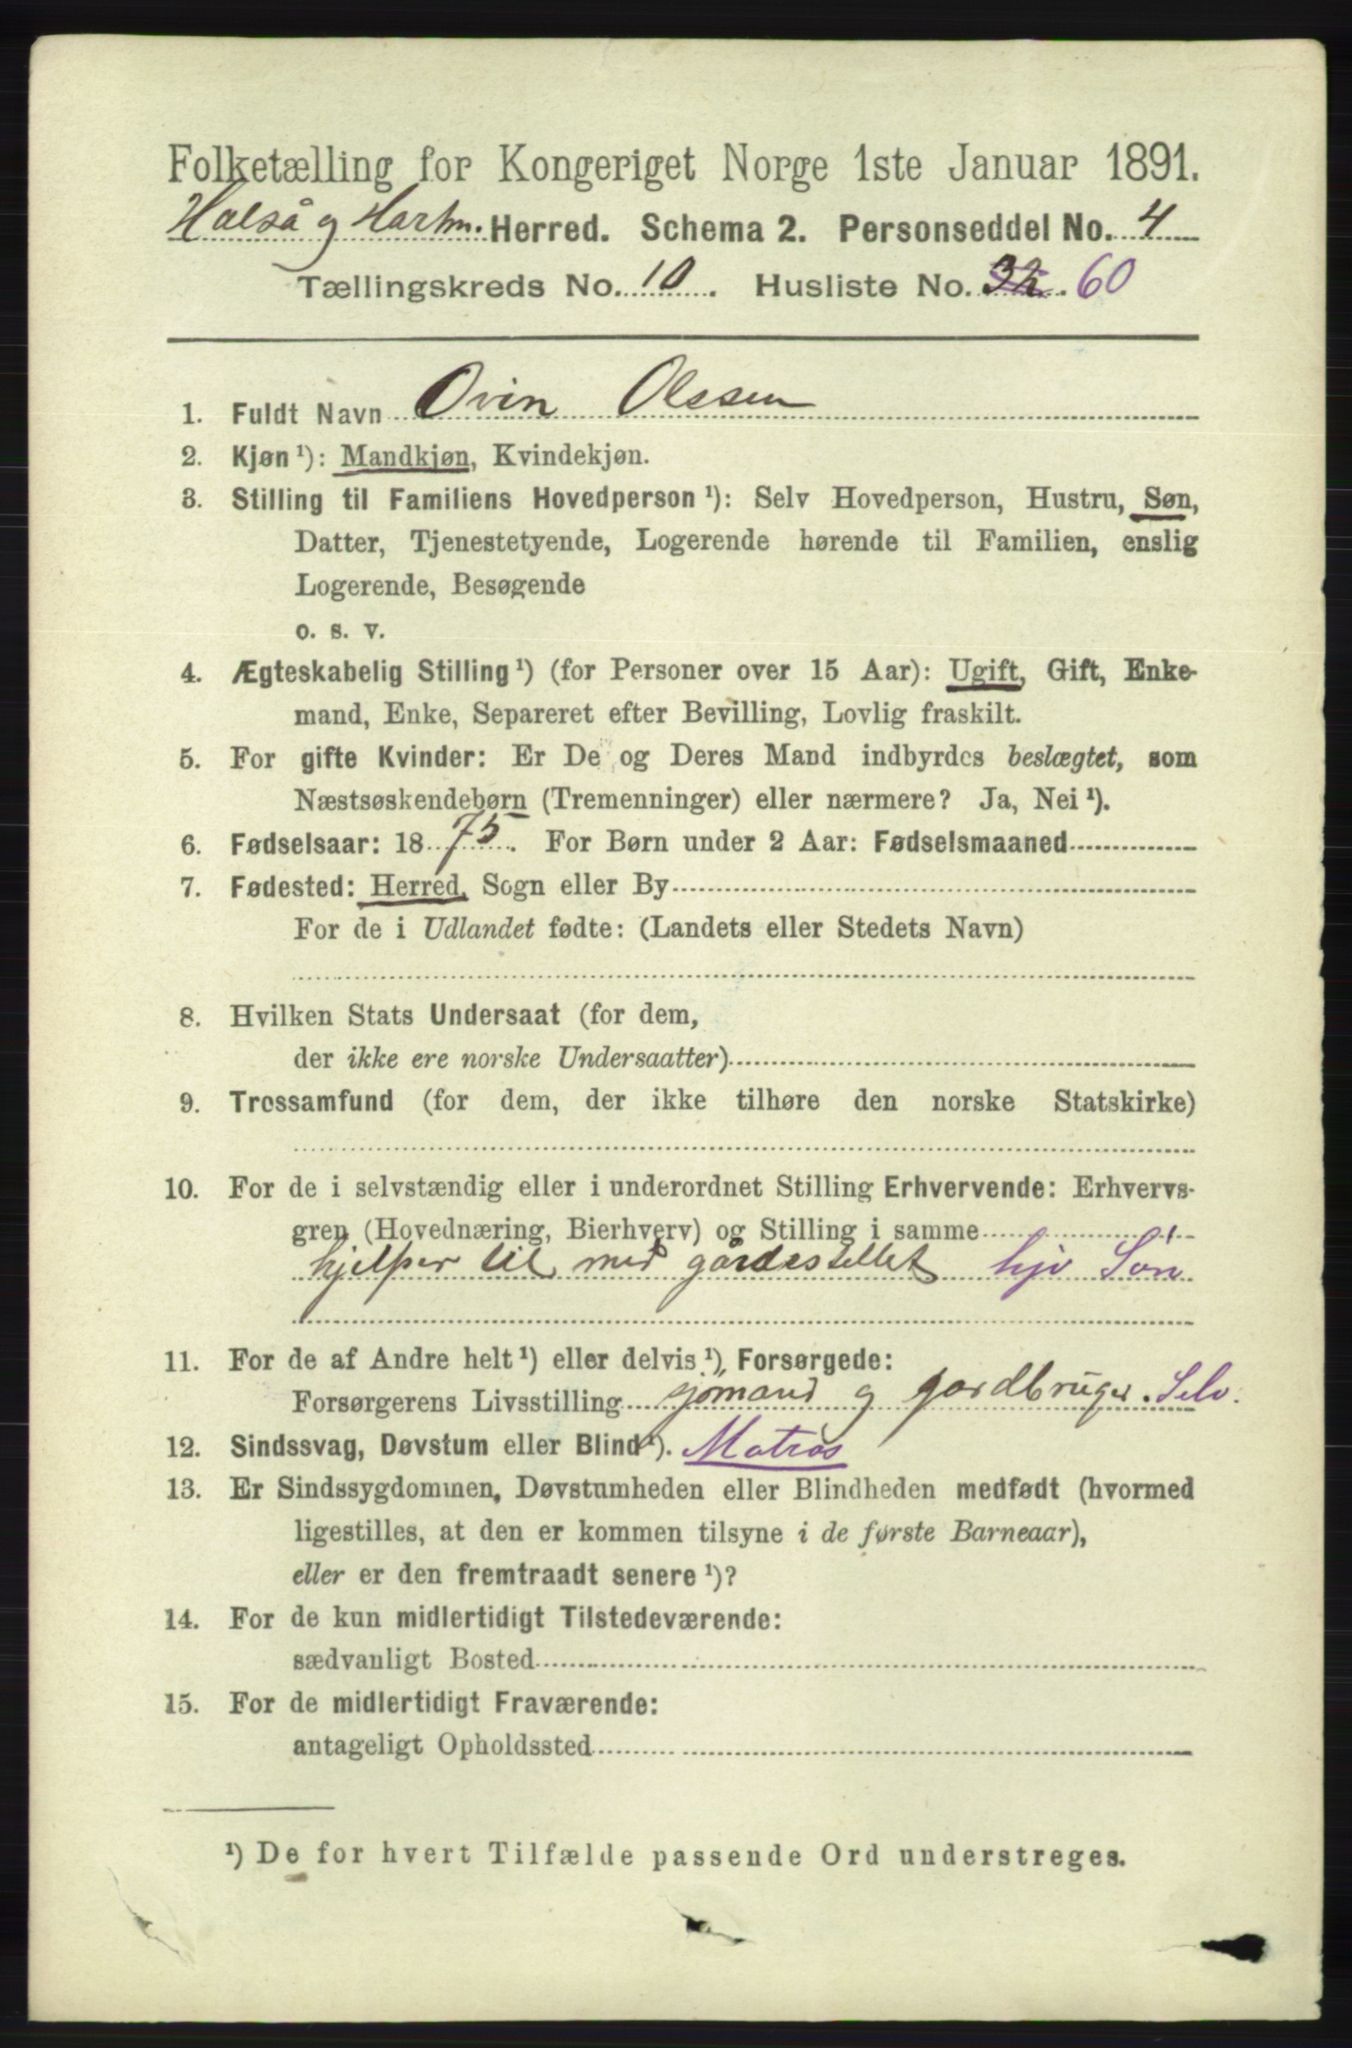 Folketælling for Kongeriget Norge 1ste Januar 1891.
Halså og Hartm. Herred. Schema 2. Personseddel No. 4
Tællingskreds No. 10. Husliste No. 32. 60
1. Fuldt Navn Ovin Olssen
2. Kjøn ¹): Mandkjøn, Kvindekjøn.
3. Stilling til Familiens Hovedperson ¹): Selv Hovedperson, Hustru, Søn,
Datter, Tjenestetyende, Logerende hørende til Familien, enslig
Logerende, Besøgende
o. s. v.
4. Ægteskabelig Stilling ¹) (for Personer over 15 Aar): Ugift, Gift, Enke-
mand, Enke, Separeret efter Bevilling, Lovlig fraskilt.
5. For gifte Kvinder: Er De og Deres Mand indbyrdes beslægtet, som
Næstsøskendebørn (Tremenninger) eller nærmere? Ja, Nei ¹).
6. Fødselsaar: 18 75. For Børn under 2 Aar: Fødselsmaaned
7. Fødested: Herred, Sogn eller By
For de i Udlandet fødte: (Landets eller Stedets Navn)
8. Hvilken Stats Undersaat (for dem,
der ikke ere norske Undersaatter)
9. Trossamfund (for dem, der ikke tilhøre den norske Statskirke)
10. For de i selvstændig eller i underordnet Stilling Erhvervende: Erhvervs-
gren (Hovednæring, Bierhverv) og Stilling i samme
hjelper til med gårdsstellet hjv Søn
11. For de af Andre helt ¹) eller delvis ¹), Forsørgede:
Forsørgerens Livsstilling sjømand og gardbruger. Selv.
12. Sindssvag, Døvstum eller Blind ¹). Matros
13. Er Sindssygdommen, Døvstumheden eller Blindheden medfødt (hvormed
ligestilles, at den er kommen tilsyne i de første Barneaar),
eller er den fremtraadt senere ¹)?
14. For de kun midlertidigt Tilstedeværende:
sædvanligt Bosted
15. For de midlertidigt Fraværende:
antageligt Opholdssted
¹) De for hvert Tilfælde passende Ord understreges.